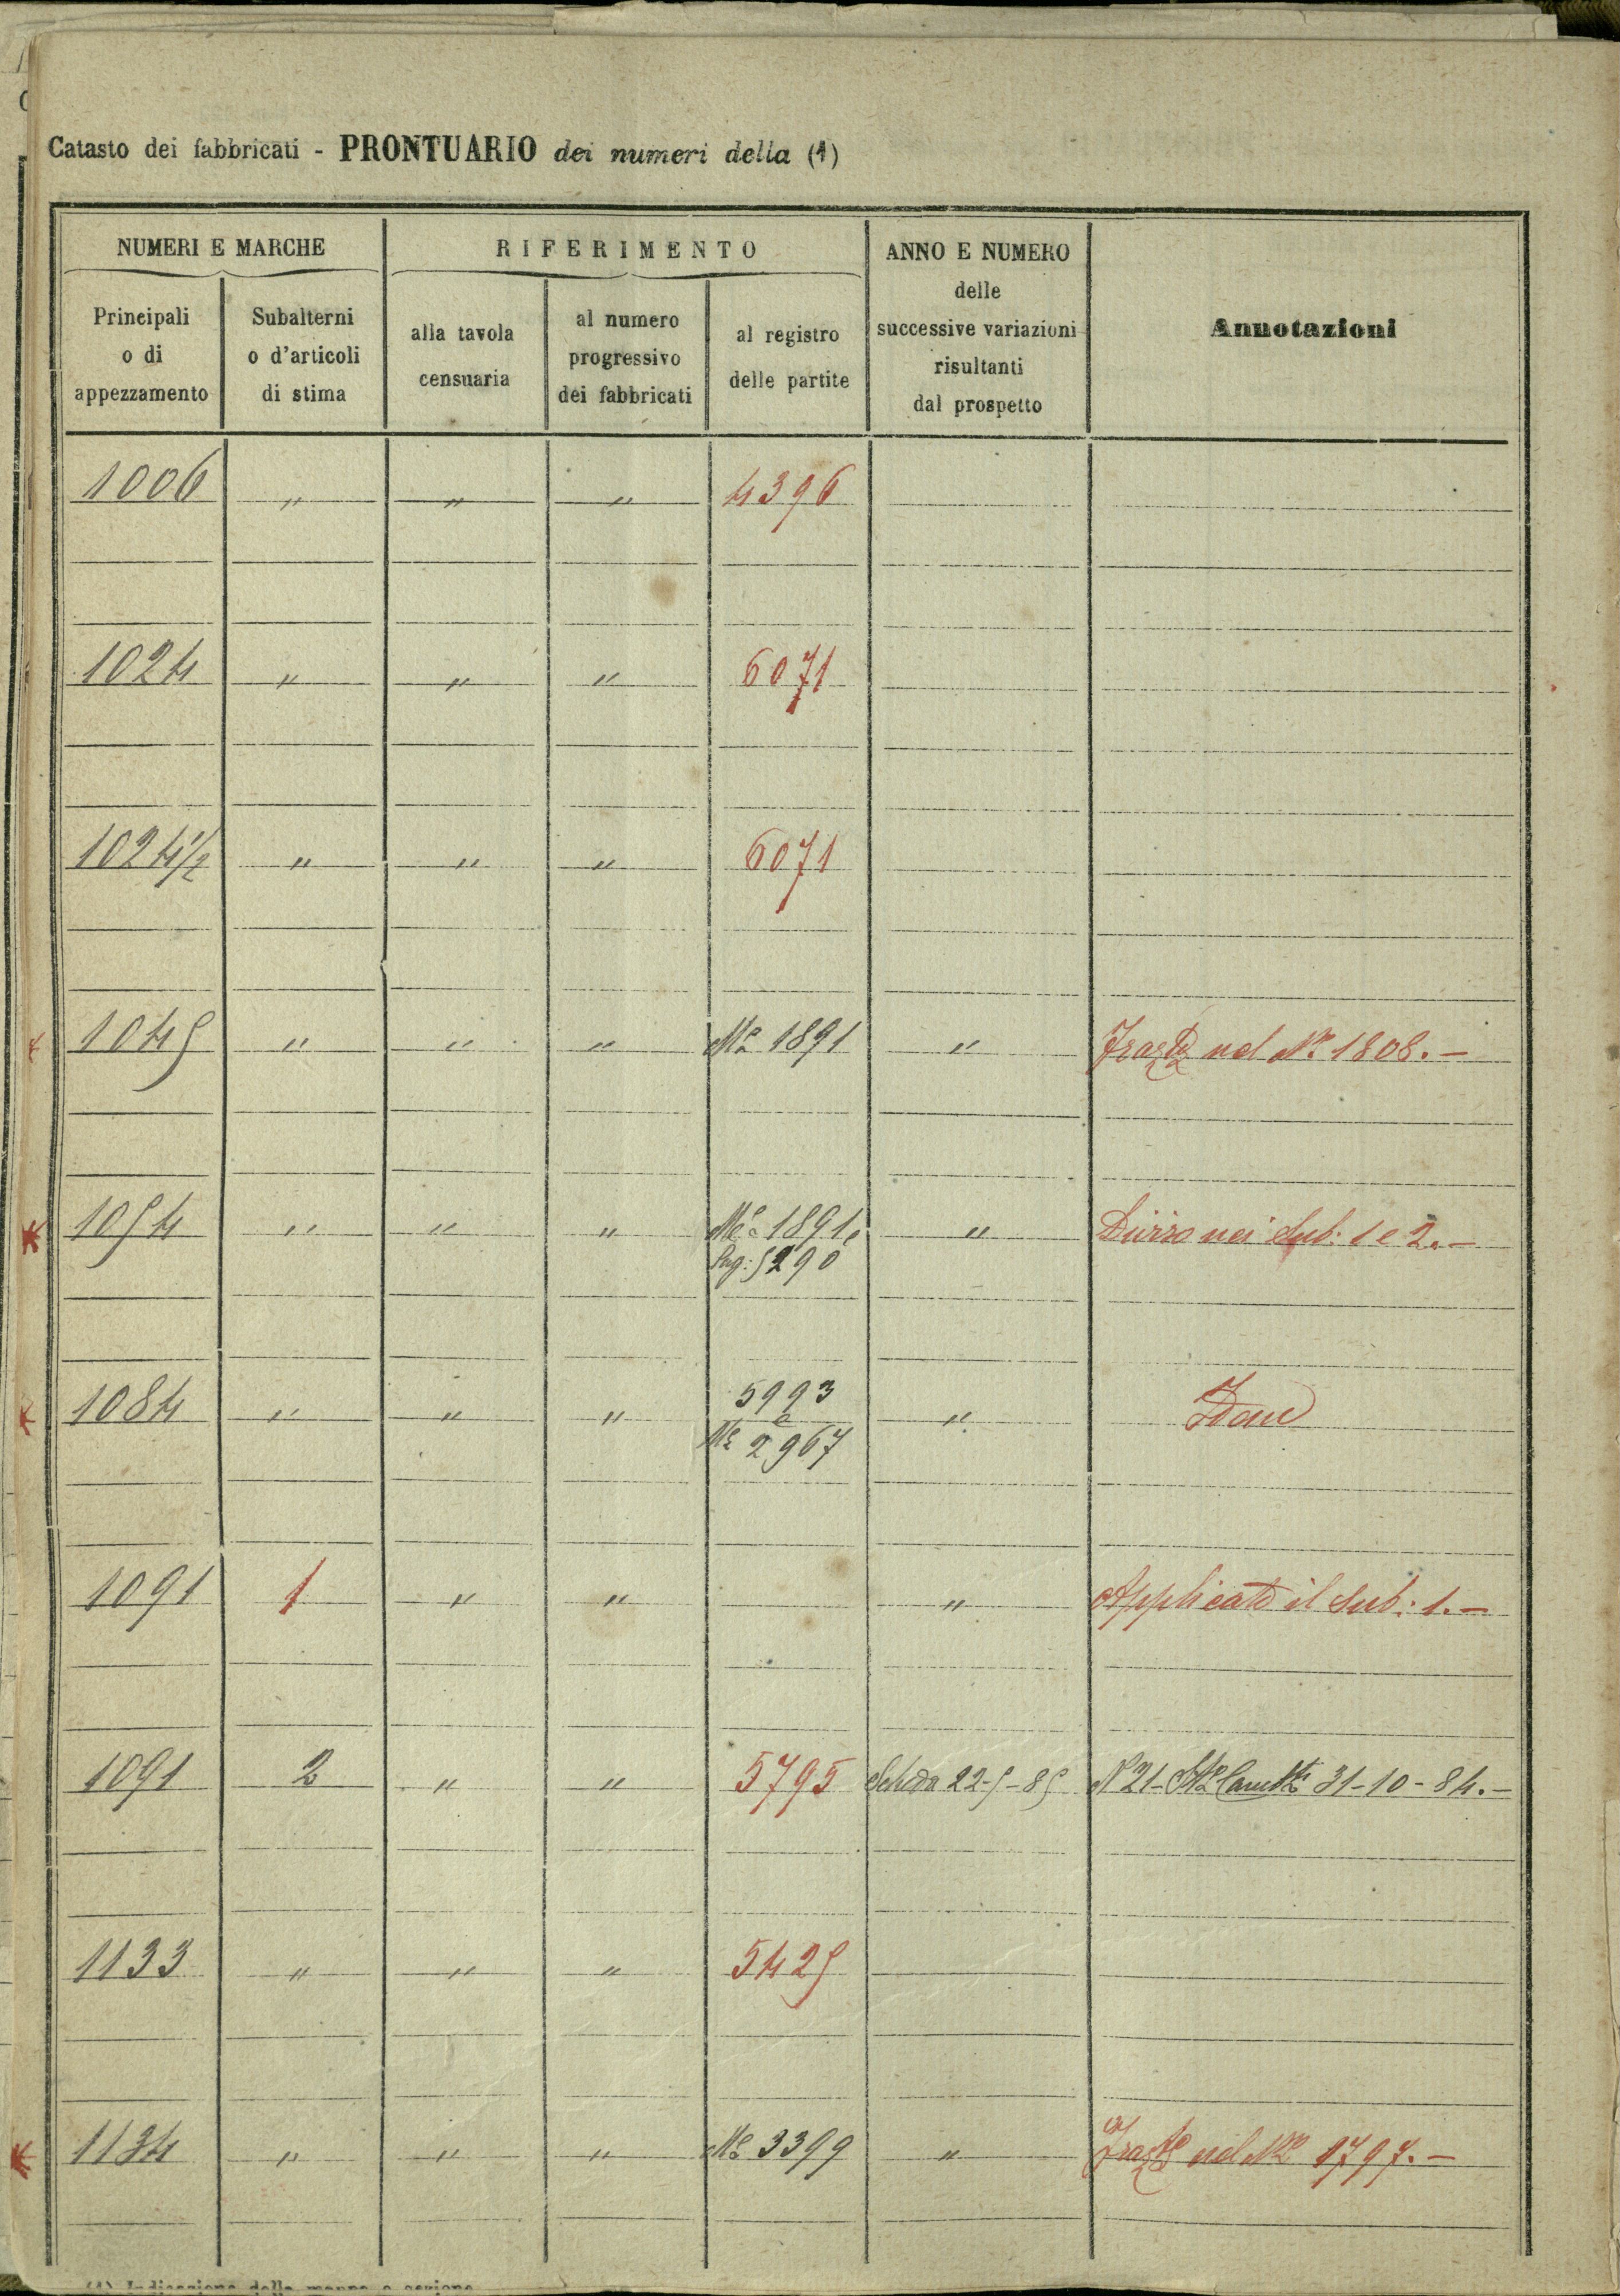 Catasto dei fabbricati - PRONTUARIO dei numeri della (1)
NUMERI E MARCHE
RIFERIMENTO
ANNO E NUMERO
delle
successive variazioni
risultanti
dal prospetto
Annotazioni
Principali
o di
appezzamento
Subalterni
o d'articoli
di stima
alla tavola
censuaria
al numero
progressivo
dei fabbricati
al registro
delle partite
1006 " " " 4396
1024 " " " 6071
1024 1/2 " " " 6071
1045 " " " 1891 " nel Nº 1808. -
1054 " " " 1891. " Diviso nei Sub: 1 e 2. -
Pag: 5290
1084 " " " 5993 " Idem
2967
1091 1 " " " Applicato il Sub: 1. -
1091 2 " " 5795 Scheda 22-5-85 Nº 21- 31-10-84. -
1133 " " " 5425
1134 " " " 3399 " nel Nº 1797. -
(1) Indicazione della mappa o sezione